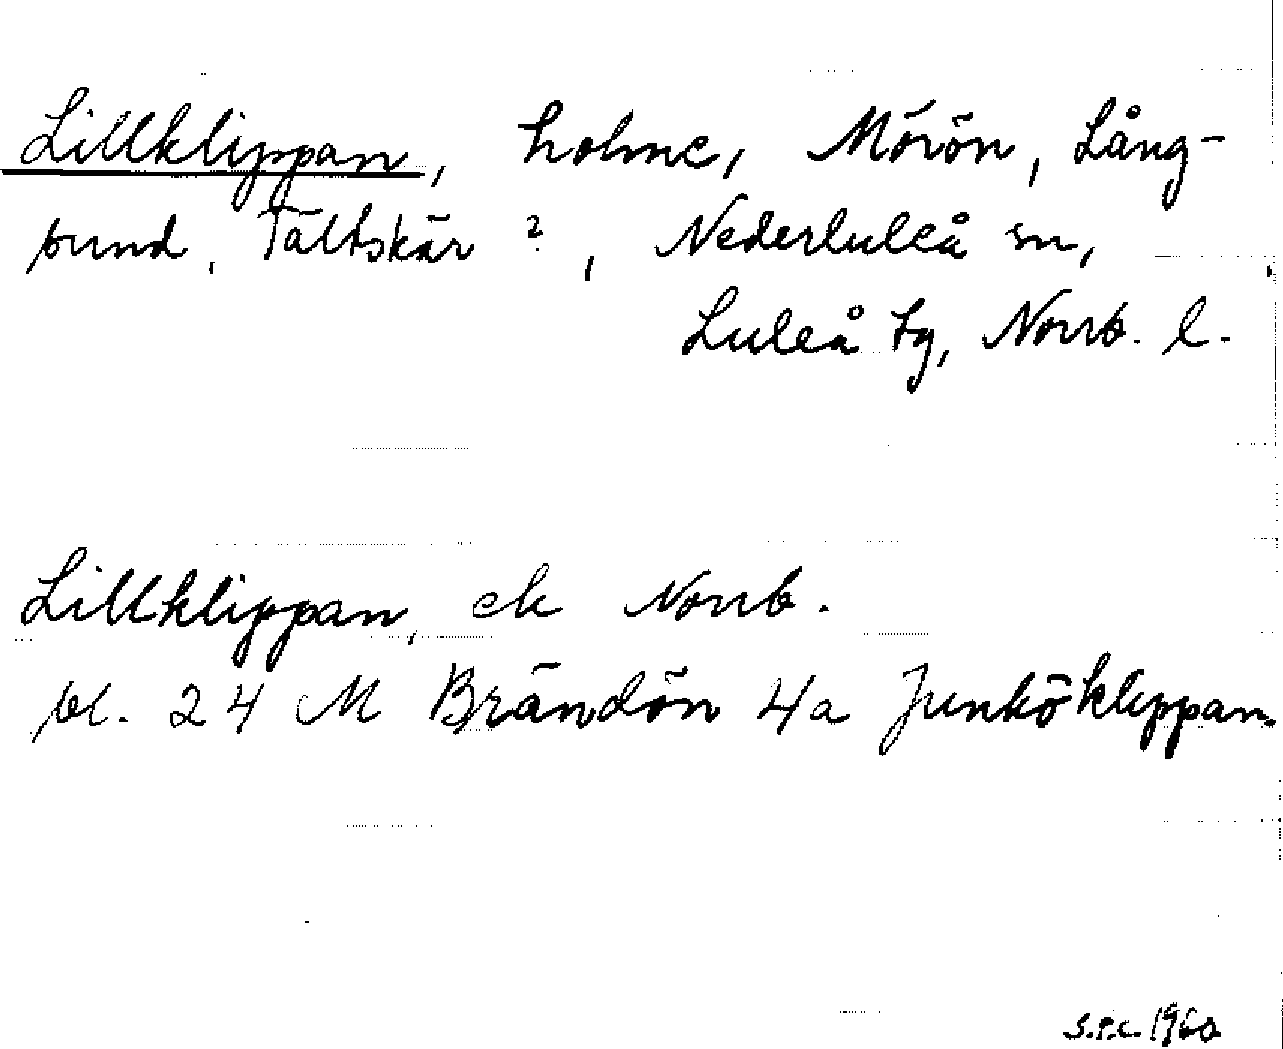 Lillklippan, holme, Mörön, Lång-
sund, Tältskär ?, Nederluleå sn,
Luleå tg, Norrb. l.
Lillklippan, ek Norrb.
bl. 24 M Brändön 4a Junköklippan.
S.P.C. 1960